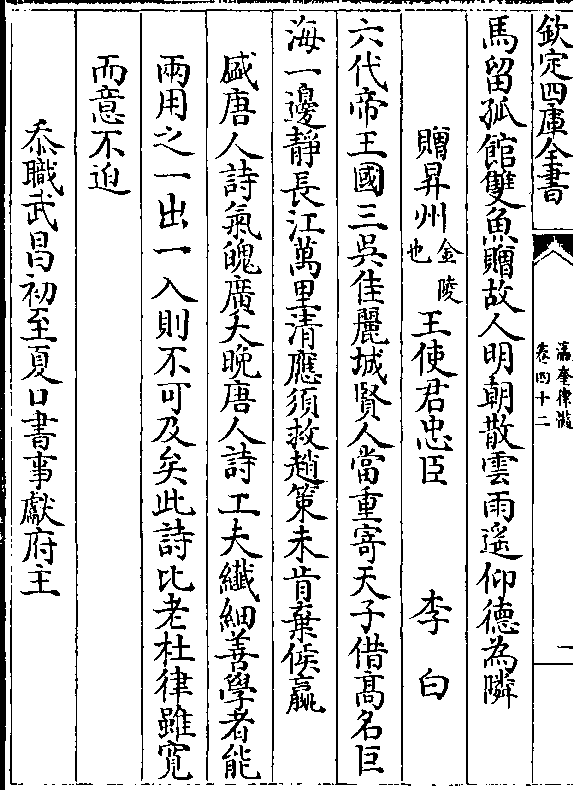 欽定四庫全書
瀛奎律髓
卷四十二
一
馬留孤館雙魚贈故人明朝散雲雨遥仰德為隣
贈昇州金陵也王使君忠臣 李白
六代帝王國三吳佳麗城賢人當重寄天子借高名巨
海一邊靜長江萬里清應須救趙策未肯棄侯嬴
盛唐人詩氣魄廣大晚唐人詩工夫纖細善學者能
兩用之一出一入則不可及矣此詩比老杜律雖寛
而意不迫
忝職武昌初至夏口書事獻府主